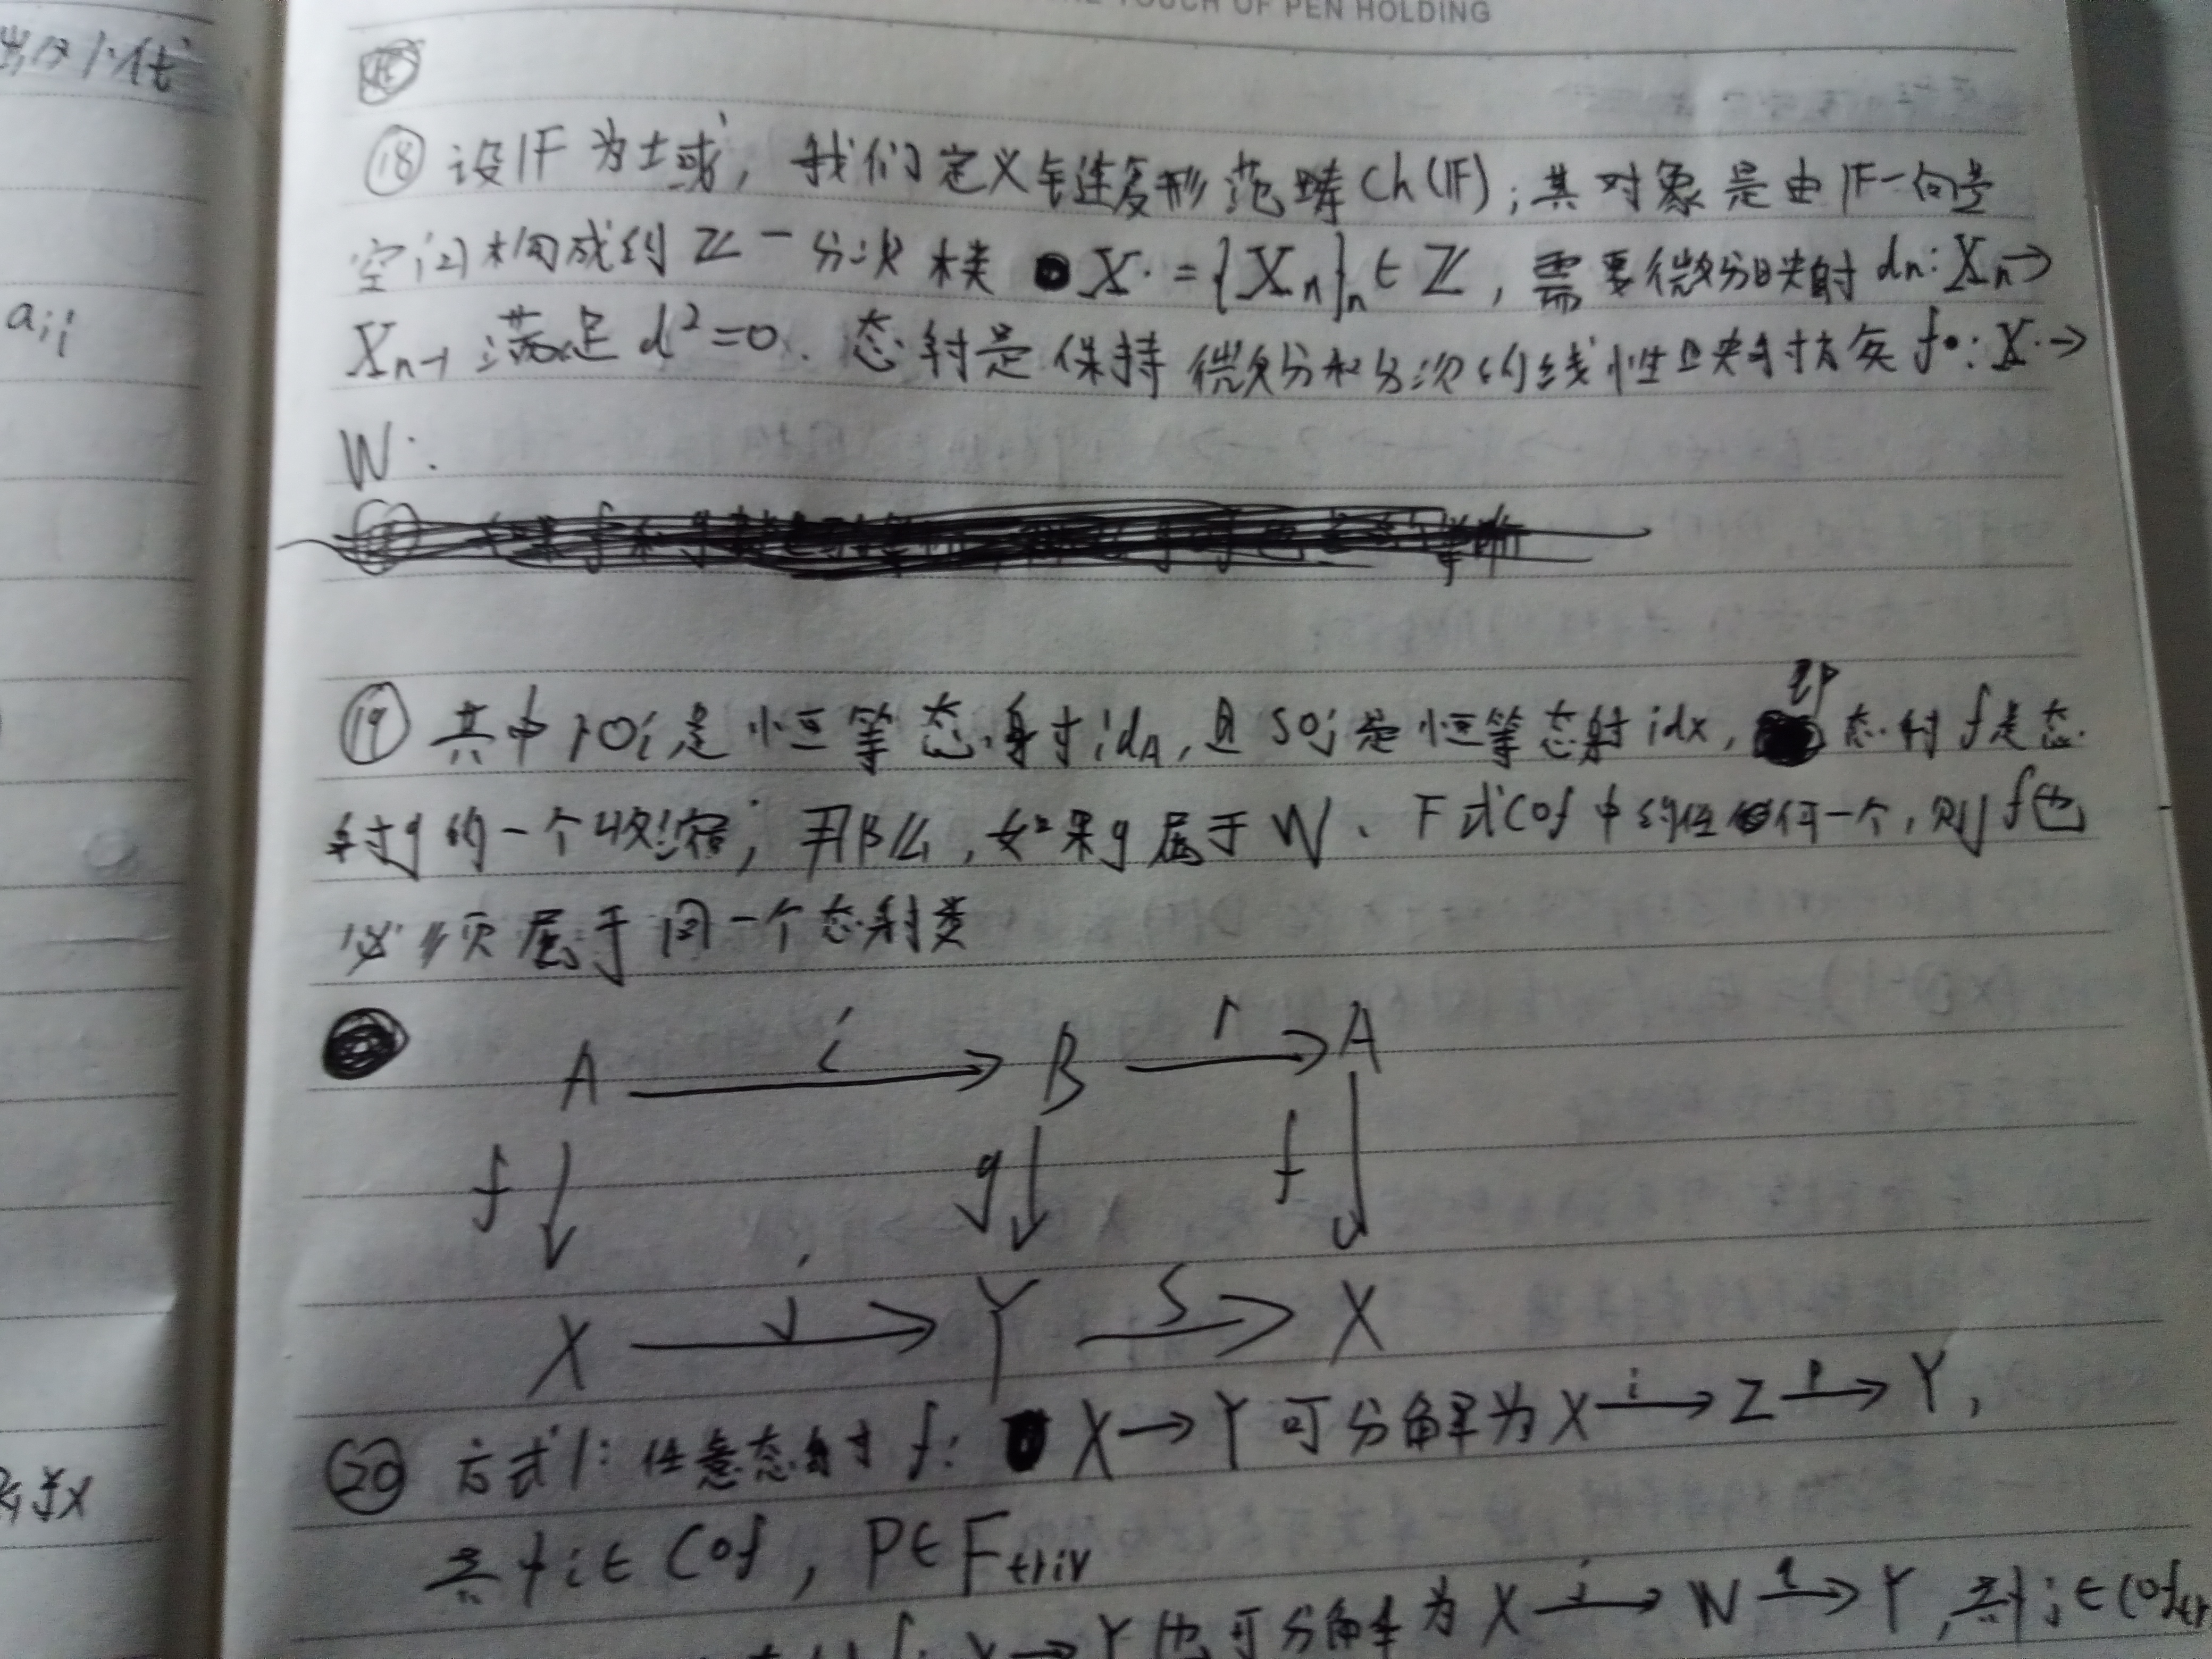 TOUCH OF PEN HOLDING
⑱ 设𝔽为域, 我们定义链复形范畴Ch(𝔽); 其对象是由𝔽-向量
空间构成的ℤ-分次 X· = {Xn}n∈ℤ, 需要微分映射 dn: Xn→
Xn-1 满足 d²=0. 态射是保持微分和分次的线性映射族 f•: X·→
W·
⑲ 其中 r∘i 是恒等态射 idA, 且 s∘j 是恒等态射 idx, 即态射 f 是态
射g的一个收缩; 那么, 如果g属于W、F或Cof中的任何一个, 则f也
必须属于同一个态射类
A i B r A
f g f
X j Y s X
⑳ 方式1: 任意态射 f: X→Y 可分解为 X i→ Z p→ Y,
其中 i∈Cof, P∈Ftriv
f: X→Y 也可分解为 X j→ W q→ Y, 其中 j∈Coftr
aij